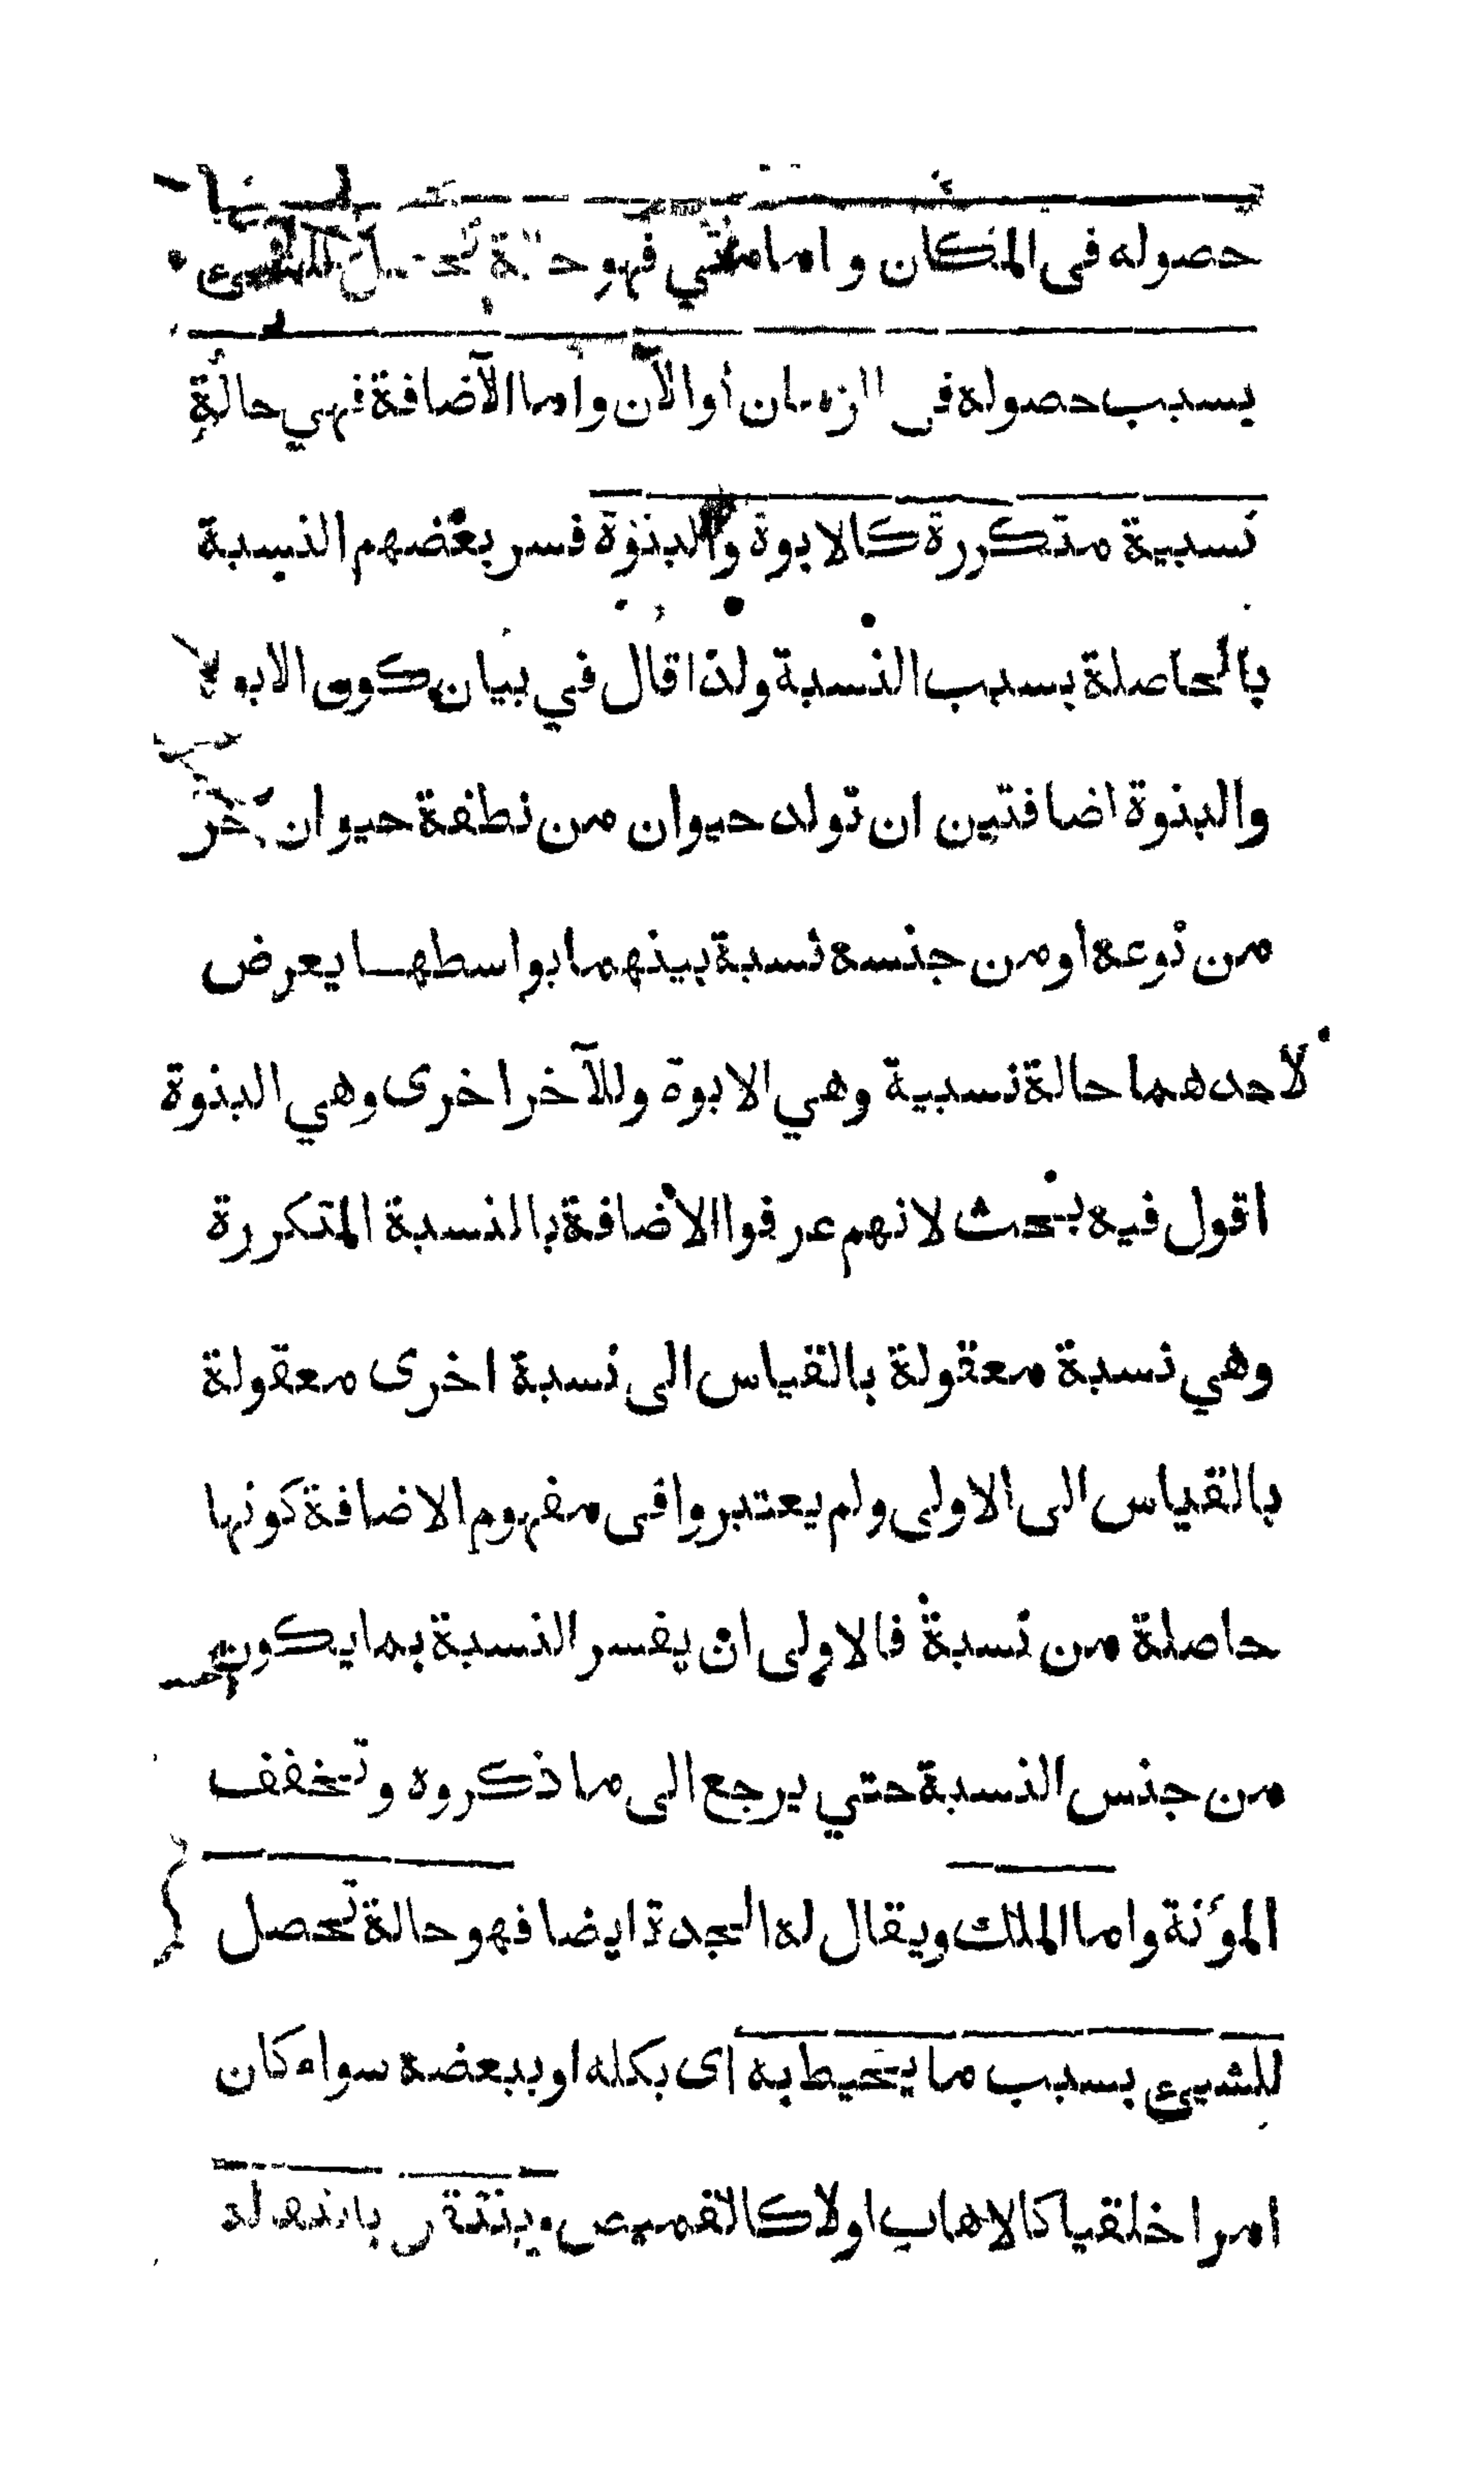 حصوله فى المكان واما متي فهو حالة تحصل للشيء
بسبب حصوله فى الزمان أو الآن واما الآضافة فهي حالة
نسبية متكررة كالابوة والبنوة فسر بعضهم النسبة
بالحاصلة بسبب النسبة ولذا قال في بيان كون الابو
والبنوة اضافتين ان تولد حيوان من نطفة حيوان آخر
من نوعه او من جنسه نسبة بينهما بواسطها يعرض
لاحدهما حالة نسبية وهي الابوة وللآخر اخرى وهي البنوة
اقول فيه بحث لانهم عرفوا الاضافة بالنسبة المتكررة
وهي نسبة معقولة بالقياس الى نسبة اخرى معقولة
بالقياس الى الاولى ولم يعتبروا فى مفهوم الاضافة كونها
حاصلة من نسبة فالاولى ان يفسر النسبة بما يكون
من جنس النسبة حتي يرجع الى ما ذكروه وتخفف
المؤنة واما الملك ويقال له الجدة ايضا فهو حالة تحصل
للشيء بسبب ما يحيط به اى بكله او ببعضه سواء كان
امرا خلقيا كالاهاب اولا كالقميص وينتقل بانتقاله